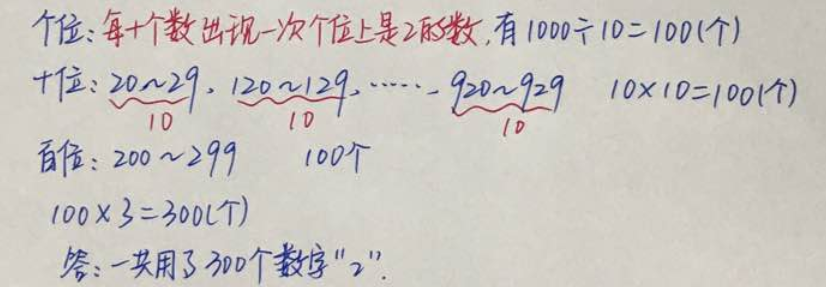 个位：每十个数出现一次个位上是2的数，有1000÷10=100(个)
十位：20~29、120~129、……、920~929 10×10=100(个)
10 10 10
百位：200~299 100个
100×3=300(个)
答：一共用了300个数字“2”.